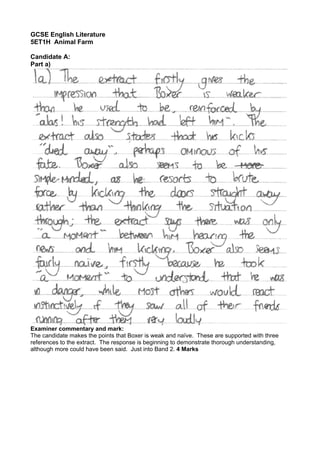 GCSE English Literature
5ET1H  Animal Farm
Candidate A:
Part a)
1a) The extract firstly gives the
impression that Boxer is weaker
than he used to be, reinforced by
"alas! his strength had left him". The
extract also states that his kicks
"died away", perhaps ominous of his
fate. Boxer also seems to be more
simple-minded, as he resorts to brute
force by kicking the doors straight away
rather than thinking the situation
through; the extract says there was only
"a moment" between him hearing the
news and him kicking. Boxer also seems
fairly naive, firstly because he took
"a moment" to understand that he was
in danger, while most others would react
instinctively if they saw all of their friends
running after them very loudly
Examiner commentary and mark:
The candidate makes the points that Boxer is weak and naïve. These are supported with three
references to the extract. The response is beginning to demonstrate thorough understanding,
although more could have been said. Just into Band 2. 4 Marks